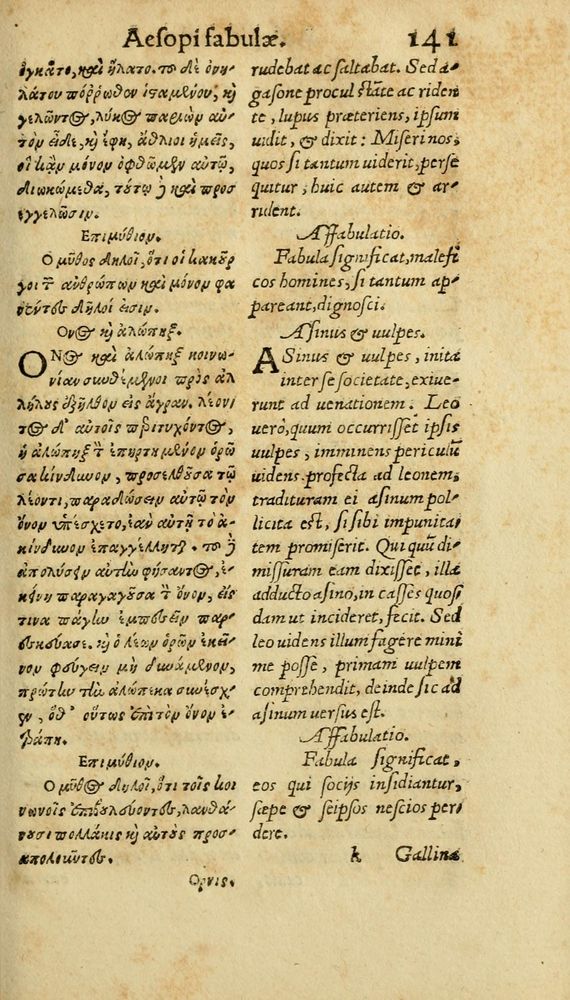 Aesopi fabulæ. 141
ὀγκᾶτο, καὶ ἥλατο. τοῦ δὲ ὀνη-
λάτου πόῤῥωθεν ἱσταμένου, καὶ
γελῶντος, λύκος παριὼν αὐ-
τὸν εἶδε, καὶ ἔφη, ἄθλιοι ἡμεῖς,
οἳ κἂν μόνον ὀφθῶμεν αὐτῷ,
διωκώμεθα, τούτῳ δὲ καὶ προσ
εγγελῶσιν.
Επιμύθιον.
Ο μῦθος δηλοῖ, ὅτι οἱ κακοῦρ
γοι τῶν ἀνθρώπων καὶ μόνον φα
νέντες δῆλοί εἰσιν.
Ονος καὶ ἀλώπηξ.
ΟΝος καὶ ἀλώπηξ κοινω-
νίαν συνθέμενοι πρὸς ἀλ
λήλους ἐξῆλθον εἰς ἄγραν. λέοντ
ος δ' αὐτοῖς περιτυχόντος,
ἡ ἀλώπηξ τὸν ἐπηρτημένον ὁρῶ
σα κίνδυνον, προσελθοῦσα τῷ
λέοντι, παραδώσειν αὐτῷ τὸν
ὄνον ὑπέσχετο, ἐὰν αὐτῇ τὸ ἀ-
κίνδυνον ἐπαγγέλληται. τοῦ δὲ
ἀπολύσειν αὐτὴν φήσαντος, ἐ-
κείνη παραγαγοῦσα τὸν ὄνον, εἴς
τινα πάγην ἐμπεσεῖν παρ-
εσκεύασε. καὶ ὁ λέων ὁρῶν ἐκεῖ-
νον φεύγειν μὴ δυνάμενον,
πρώτην τὴν ἀλώπεκα συνέσχ-
εν, εἶθ' οὕτως ἐπὶ τὸν ὄνον ἐ-
τράπη.
Επιμύθιον.
Ο μῦθος δηλοῖ, ὅτι τοῖς κοι
νωνοῖς ἐπιβουλεύοντες, λανθά-
νουσι πολλάκις καὶ αὐτοὺς προσ-
απολοῦντες.
Ορνις.
rudebat ac saltabat. Sed a-
gasone procul stāte ac riden
te, lupus præteriens, ipsum
uidit, & dixit: Miseri nos,
quos si tantum uiderit, perse
quitur, huic autem & ar-
rident.
Affabulatio.
Fabula significat, malefi
cos homines, si tantum ap-
pareant, dignosci.
Asinus & uulpes.
ASinus & uulpes, inita
inter se societate, exiue-
runt ad uenationem. Leo
uero, quum occurrisset ipsis
uulpes, imminens periculū
uidens, profecta ad leonem,
tradituram ei asinum pol-
licita est, si sibi impunita-
tem promiserit. Qui quū di-
missuram eam dixisset, illa
adducto asino, in casses quos
dam ut incideret, fecit. Sed
leo uidens illum fugere mini
me posse, primam uulpem
comprehendit, deinde sic ad
asinum uersus est.
Affabulatio.
Fabula significat,
eos qui socijs insidiantur,
sæpe & seipsos nescios per
dere.
k Gallina